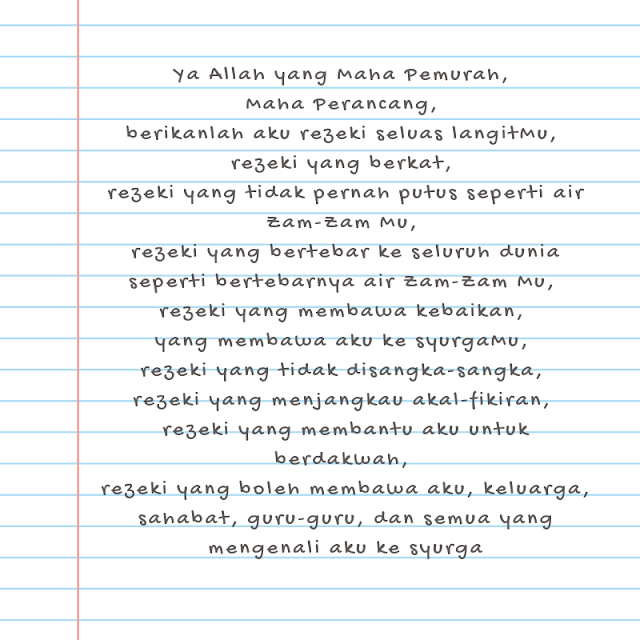 Ya Allah yang Maha Pemurah,
Maha Perancang,
berikanlah aku rezeki seluas langitMu,
rezeki yang berkat,
rezeki yang tidak pernah putus seperti air
Zam-Zam Mu,
rezeki yang bertebar ke seluruh dunia
seperti bertebarnya air Zam-Zam Mu,
rezeki yang membawa kebaikan,
yang membawa aku ke syurgaMu,
rezeki yang tidak disangka-sangka,
rezeki yang menjangkau akal-fikiran,
rezeki yang membantu aku untuk
berdakwah,
rezeki yang boleh membawa aku, keluarga,
sahabat, guru-guru, dan semua yang
mengenali aku ke syurga